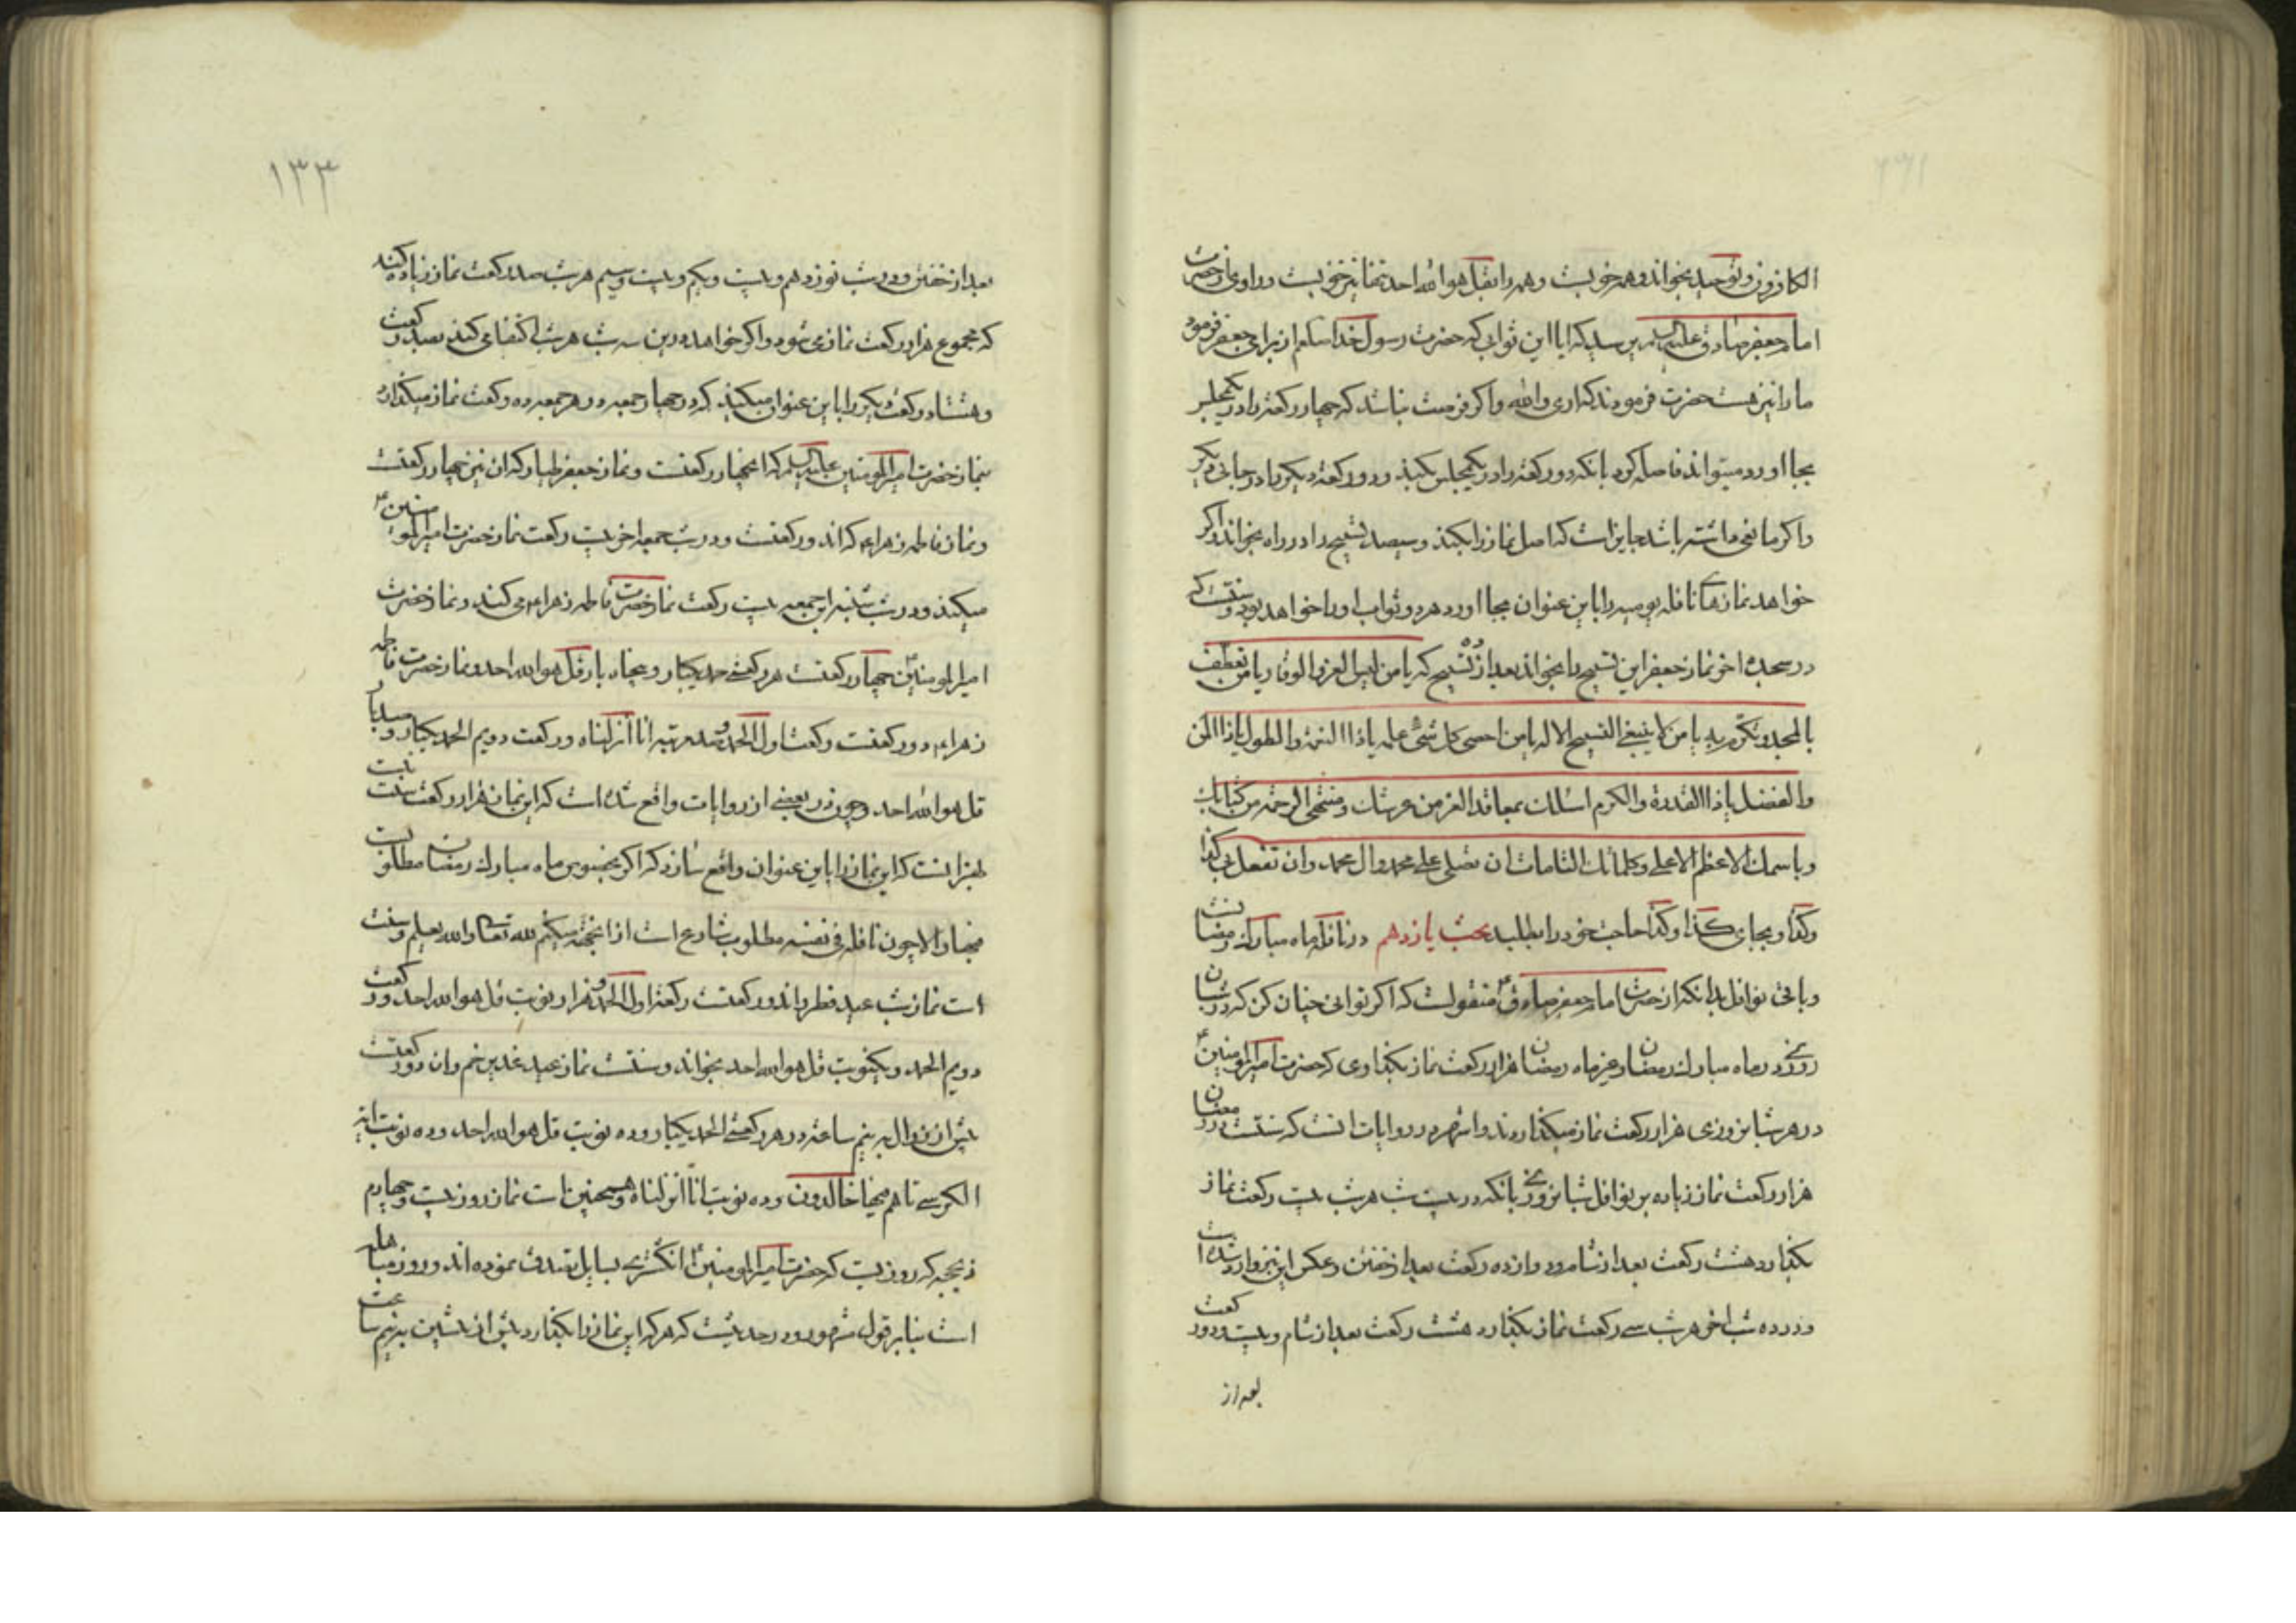 الکافرون و توحید بخواند و همه خوبست و همه را بقل هو الله احد تنها نیز خوبست و راوی از حضرت
امام جعفر صادق علیه السلام پرسید که ایا این ثوابی که حضرت رسول خدا صلعم از برای جعفر فرمود
ما را نیز هست حضرت فرمودند که اری والله و اکر فرصت نباشد که چهار رکعت را در یکمجلس
بجا اورد میتواند فاصله کرد بانکه دو رکعت را در یکمجلس بکند و دو رکعت دیکر را در جائی دیکر
و اکر مانعی داشته باشد جایز است که اصل نماز را بکند و سیصد تسبیح را در راه بخواند و اکر
خواهد نمازهای نافله یومیه را باین عنوان بجا اورد هر دو ثواب او را خواهد بود و سنتست که
در سجده اخر نماز جعفر این تسبیح را بخواند بعد از تسبیح که یا من لبس العز و الوقار یا من تعطف
بالمجد و تکرم به یا من لا ینبغی التسبیح الا له یا من احصی کل شئ علمه یا ذا النعمة و الطول یا ذا المن
و الفضل یا ذا القدرة و الکرم اسئلک بمعاقد العز من عرشک و منتهی الرحمة من کتابک
و باسمک الاعظم الاعلی و کلماتک التامات ان تصلی علی محمد و ال محمد و ان تفعل بی کذا
و کذا و بجای کذا و کذا حاجت خود را بطلبد بحث یازدهم در نافله ماه مبارک رمضانست
و باقی نوافل بدانکه از حضرت امام جعفر صادق ع منقولست که اکر توانی چنان کن که در شبان
روزی در ماه مبارک رمضان و غیر ماه رمضان هزار رکعت نماز بکذاری که حضرت امیرالمومنین ع
در هر شبانروزی هزار رکعت نماز میکذاردند و اشهر در روایات انست که سنتست در رمضان
هزار رکعت نماز زیاده بر نوافل شبانروزی بانکه در بیست شب هر شب بیست رکعت نماز
بکذارد هشت رکعت بعد از شام و دوازده رکعت بعد از خفتن و عکس این نیز وارد شده است
و در ده شب اخر هر شب سی رکعت نماز بکذارد هشت رکعت بعد از شام و بیست و دو رکعت
بعد از
۱۳۳
بعد از خفتن و در شب نوزدهم و بیست و یکم و بیست و سیم هر شب صد رکعت نماز زیاده کند
که مجموع هزار رکعت نماز می شود و اکر خواهد در این سه شب هر شب اکتفا می کند بصد رکعت
و هشتاد رکعت دیکر را باین عنوان میکند که در چهار جمعه در هر جمعه ده رکعت نماز میکذارد
بنماز حضرت امیرالمومنین علیه السلم که ان چهار رکعتست و نماز جعفر طیار که ان نیز چهار رکعتست
و نماز فاطمه زهراء که اند و رکعتست و در شب جمعه اخر بیست رکعت نماز حضرت امیرالمومنین ع
میکند و در شب شنبه این جمعه بیست رکعت نماز حضرت فاطمه زهراء می کند و نماز حضرت
امیرالمومنین ع چهار رکعتست هر رکعتی حمد یکبار و پنجاه بار قل هو الله احد و نماز حضرت فاطمه
زهراء دو رکعتست رکعت اول الحمد و صد مرتبه انا انزلناه و رکعت دویم الحمد یکبار و صد بار
قل هو الله احد و چون در بعضی از روایات واقع شده است که این نماز هزار رکعت سنت است
بهتر انست که این نماز را باین عنوان واقع سازد که اکر بخصوص ماه مبارک رمضان مطلوبست
فبها و الا چون نافله فی نفسه مطلوب شارع است از انجهة میکنم لله تعالی والله یعلم و سنت
است نماز شب عید فطر و اند و رکعتست رکعت اول الحمد و هزار نوبت قل هو الله احد و رکعت
دویم الحمد و یکنوبت قل هو الله احد بخواند و سنتست نماز عید غدیر خم و ان دو رکعتست
پیش از زوال به نیم ساعت و در هر رکعتی الحمد یکبار و ده نوبت قل هو الله احد و ده نوبت ایة
الکرسی تا هم فیها خالدون و ده نوبت انا انزلناه و همچنین است نماز روز بیست و چهارم
ذیحجه که روزیست که حضرت امیرالمومنین ع انکشتری بسایل تصدق نموده اند و روز مباهله
است بنابر قول مشهور و در حدیثست که هر که این نماز را بکذارد پیش از پیشین به نیم ساعت